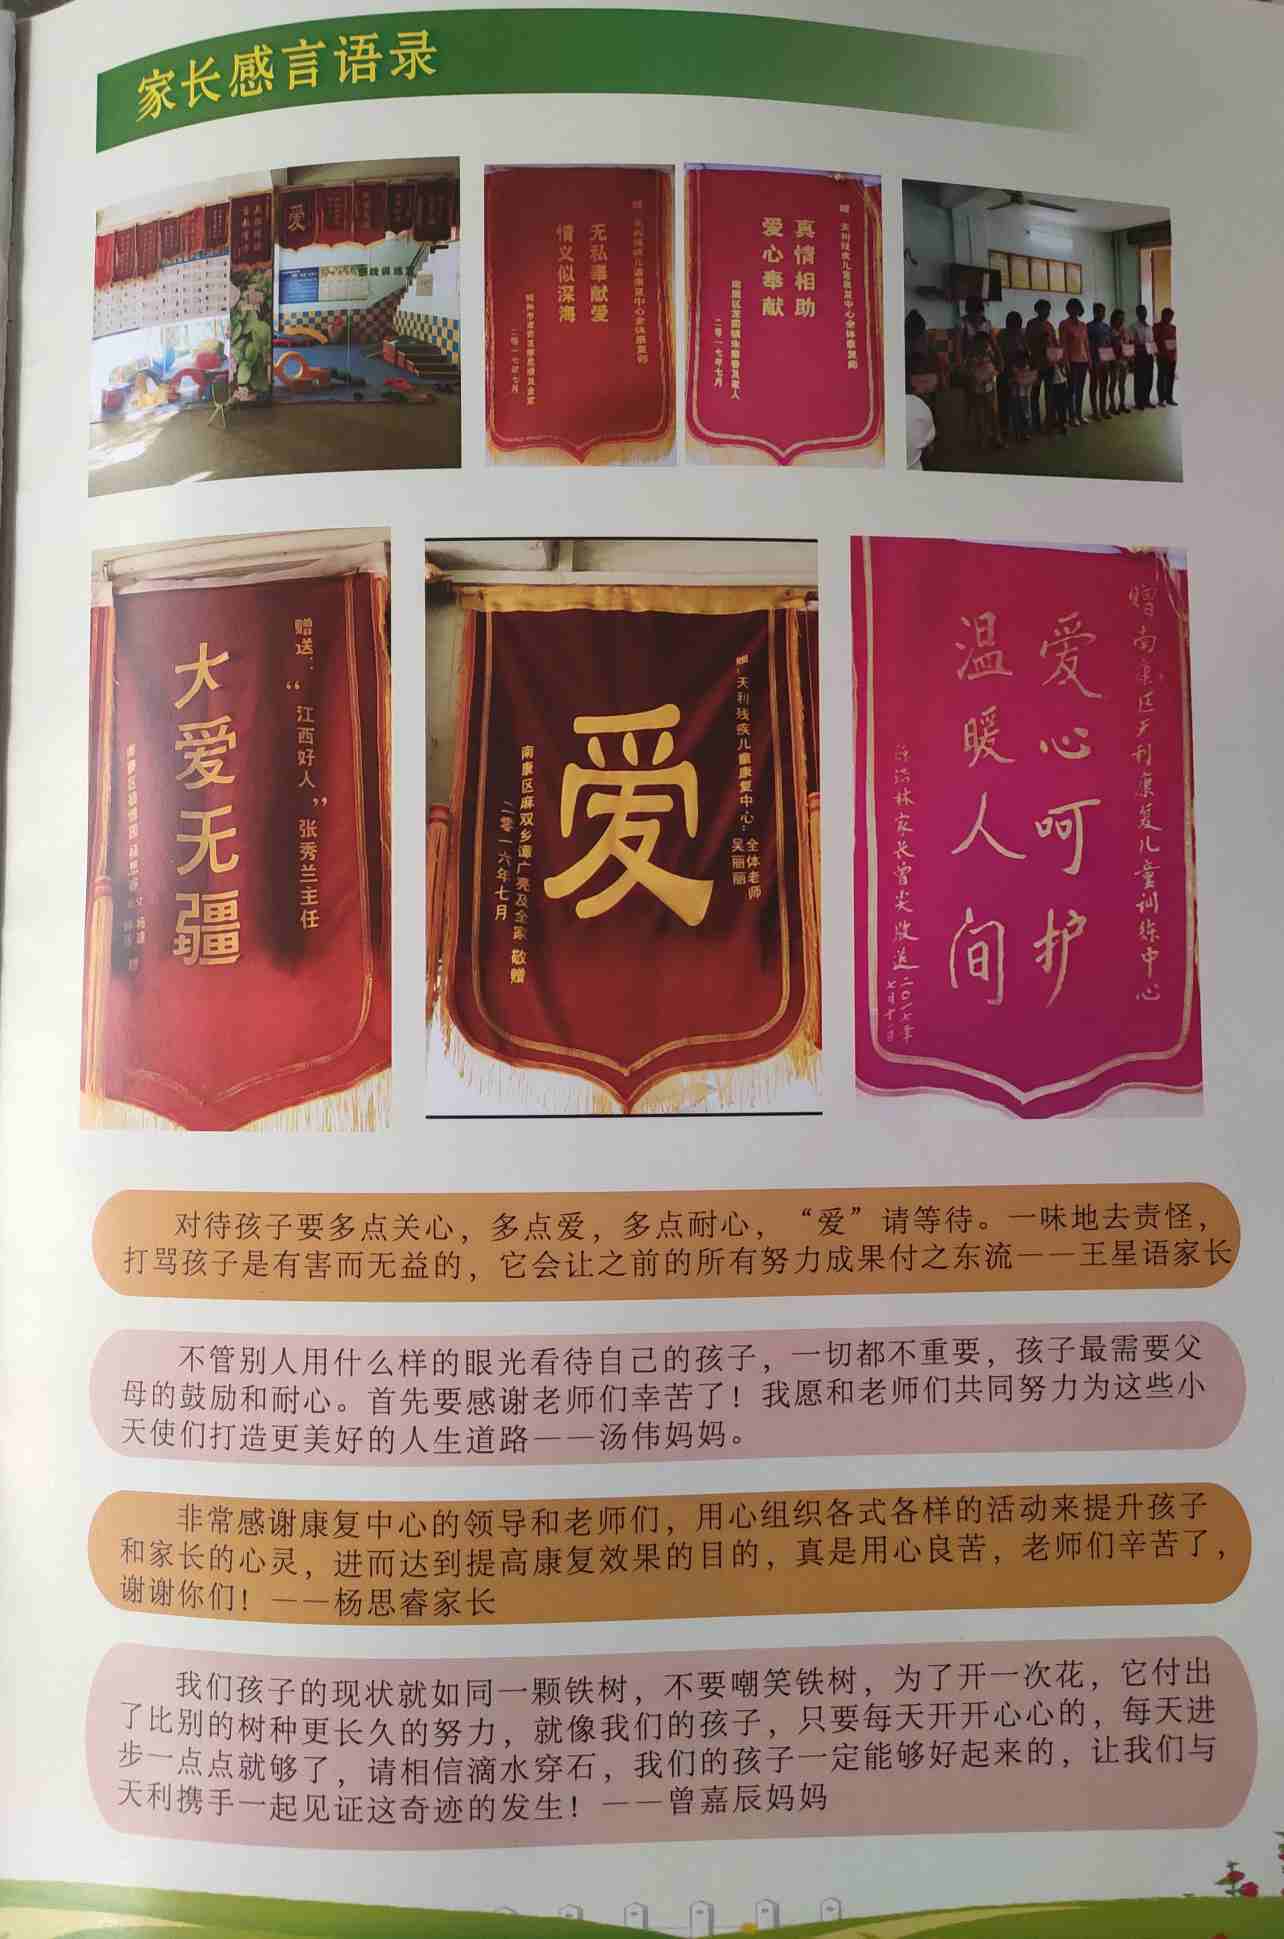 家长感言语录
无私奉献爱
情义似深海
二零一七年七月
赠 天利残疾儿童康复中心全体康复师
真情相助
爱心奉献
二零一七年七月
赠送：“江西好人”张秀兰主任
大爱无疆
赠：天利残疾儿童康复中心：全体老师
吴丽丽
爱
南康区麻双乡谭广亮及全家 敬赠
二零一六年七月
赠南康区天利康复儿童训练中心
爱心呵护
温暖人间
对待孩子要多点关心，多点爱，多点耐心，“爱”请等待。一味地去责怪，
打骂孩子是有害而无益的，它会让之前的所有努力成果付之东流——王星语家长
不管别人用什么样的眼光看待自己的孩子，一切都不重要，孩子最需要父
母的鼓励和耐心。首先要感谢老师们幸苦了！我愿和老师们共同努力为这些小
天使们打造更美好的人生道路——汤伟妈妈。
非常感谢康复中心的领导和老师们，用心组织各式各样的活动来提升孩子
和家长的心灵，进而达到提高康复效果的目的，真是用心良苦，老师们辛苦了，
谢谢你们！——杨思睿家长
我们孩子的现状就如同一颗铁树，不要嘲笑铁树，为了开一次花，它付出
了比别的树种更长久的努力，就像我们的孩子，只要每天开开心心的，每天进
步一点点就够了，请相信滴水穿石，我们的孩子一定能够好起来的，让我们与
天利携手一起见证这奇迹的发生！——曾嘉辰妈妈